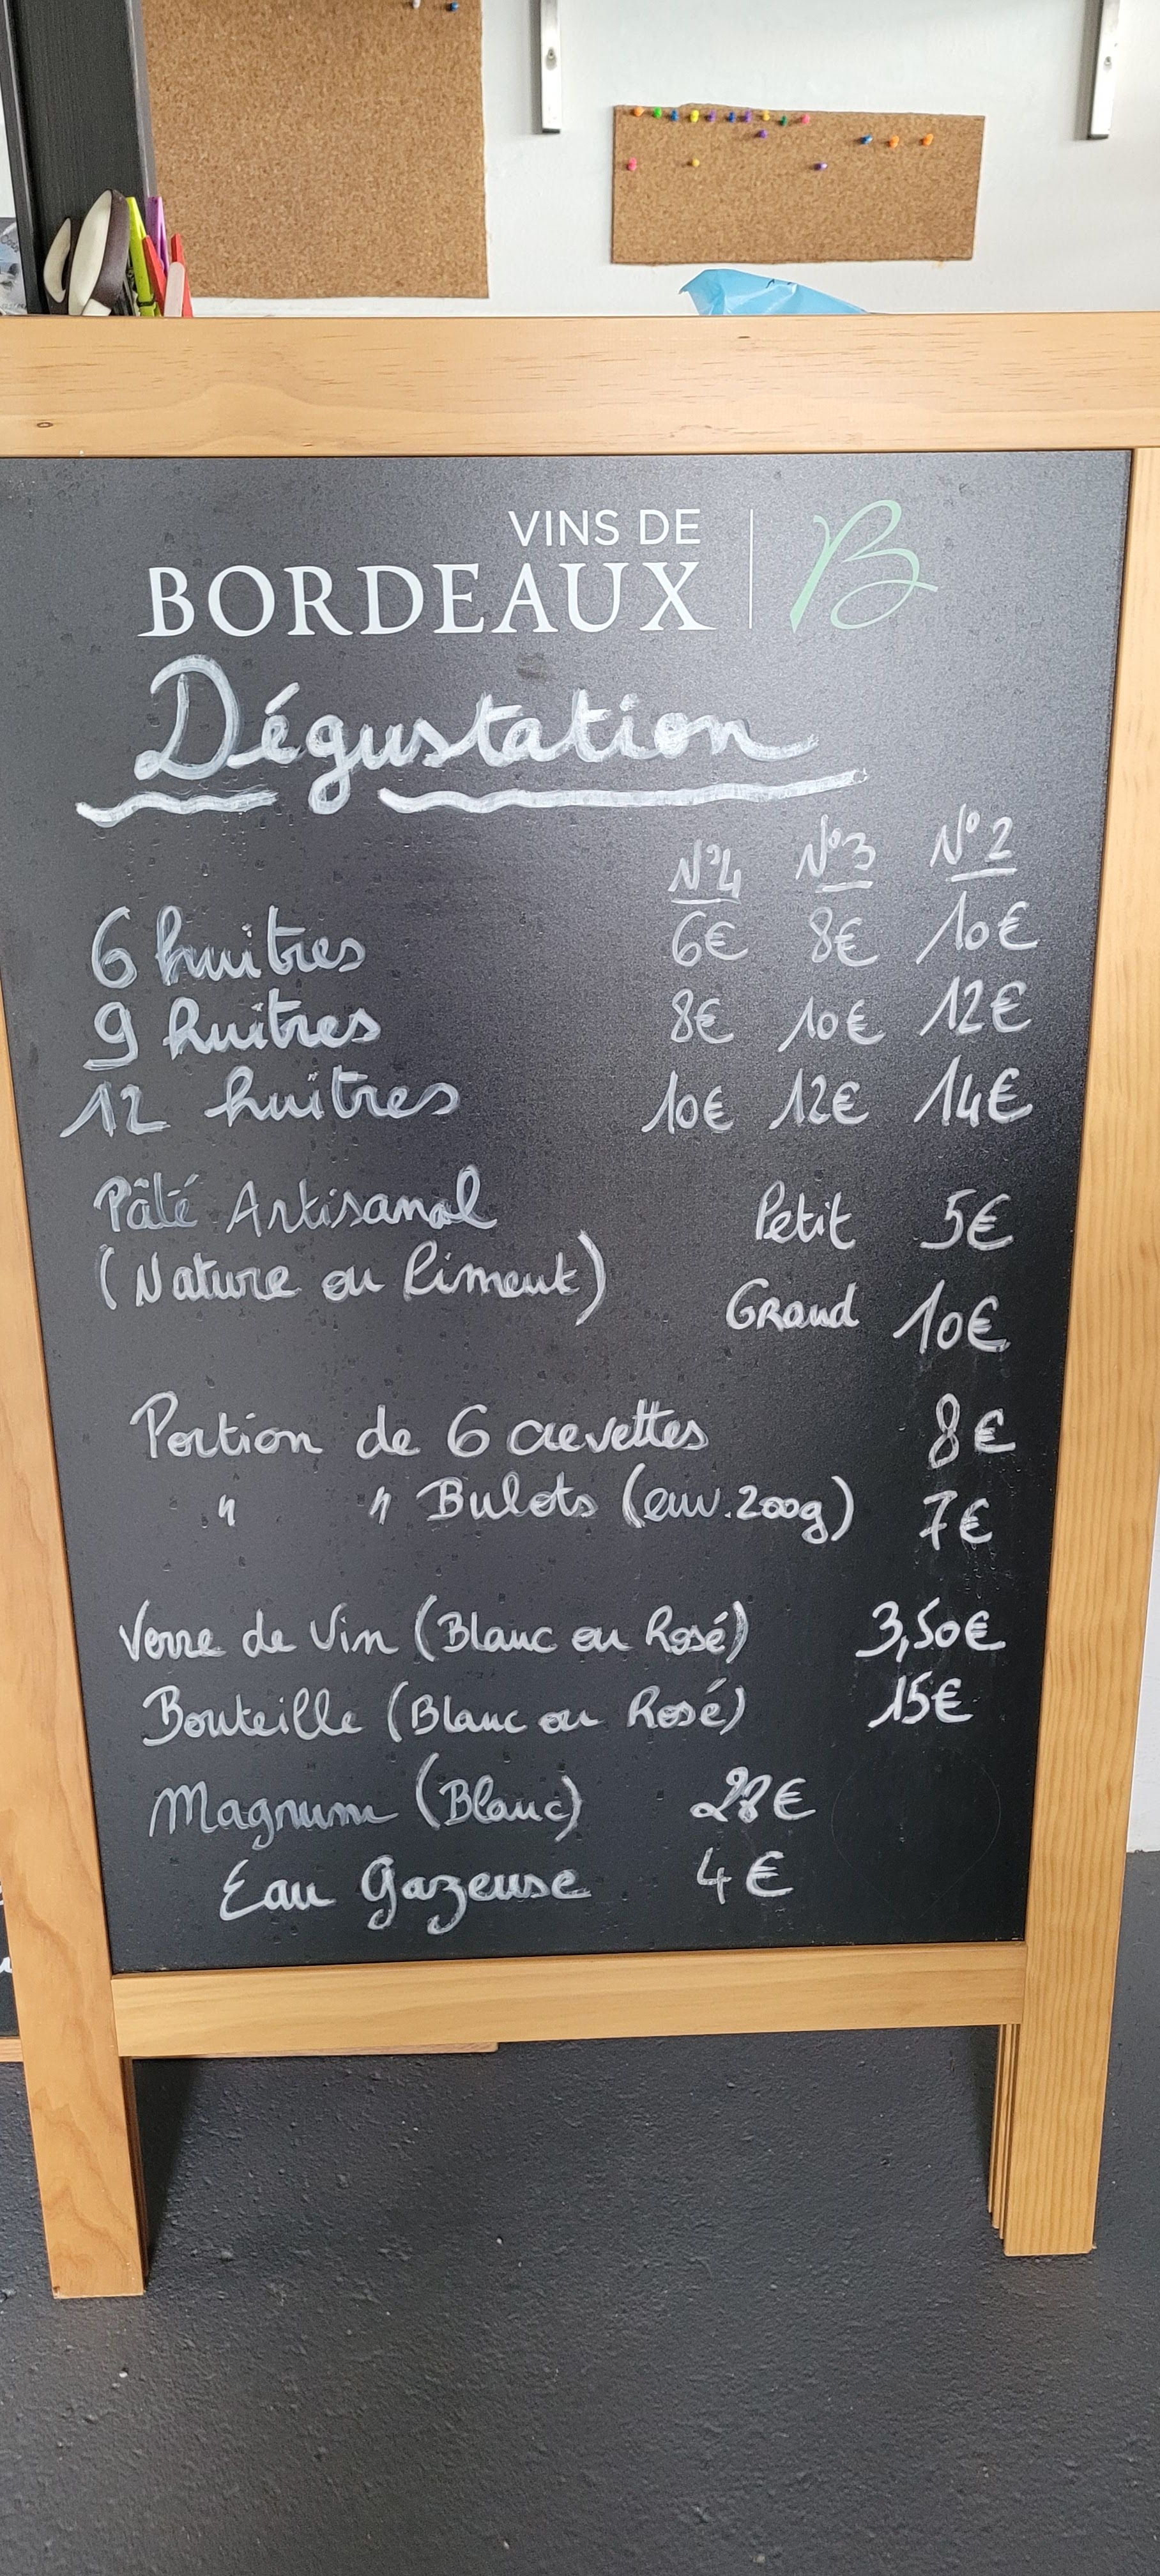 VINS DE
BORDEAUX
B
Dégustation
N°4 N°3 N°2
6 huitres 6€ 8€ 10€
9 huîtres 8€ 10€ 12€
12 huîtres 10€ 12€ 14€
Pâté Artisanal Petit 5€
(Nature ou Piment)
Grand 10€
Portion de 6 crevettes 8€
" " Bulots (env. 200g) 7€
Verre de Vin (Blanc ou Rosé) 3,50€
Bouteille (Blanc ou Rosé) 15€
Magnum (Blanc) 28€
Eau Gazeuse 4€